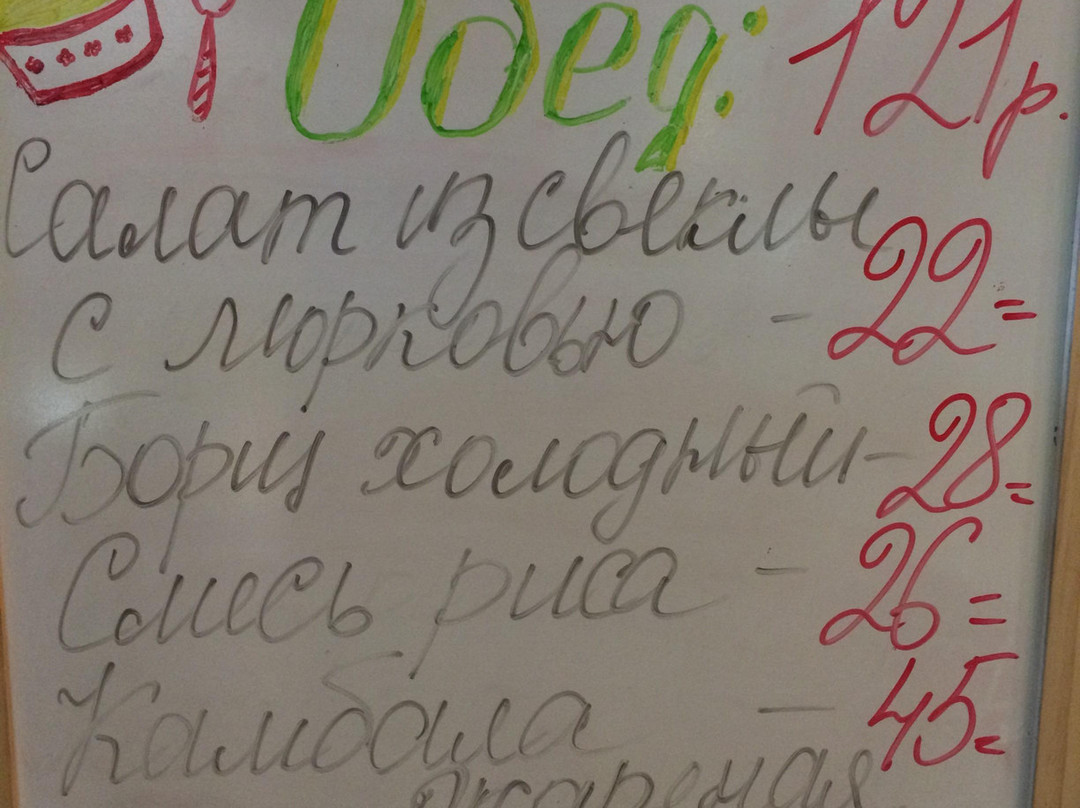 Обед: 121р.
Салат из свеклы
с морковью - 22=
Борщ холодный - 28=
Смесь риса - 26=
Камбала - 45=
жареная